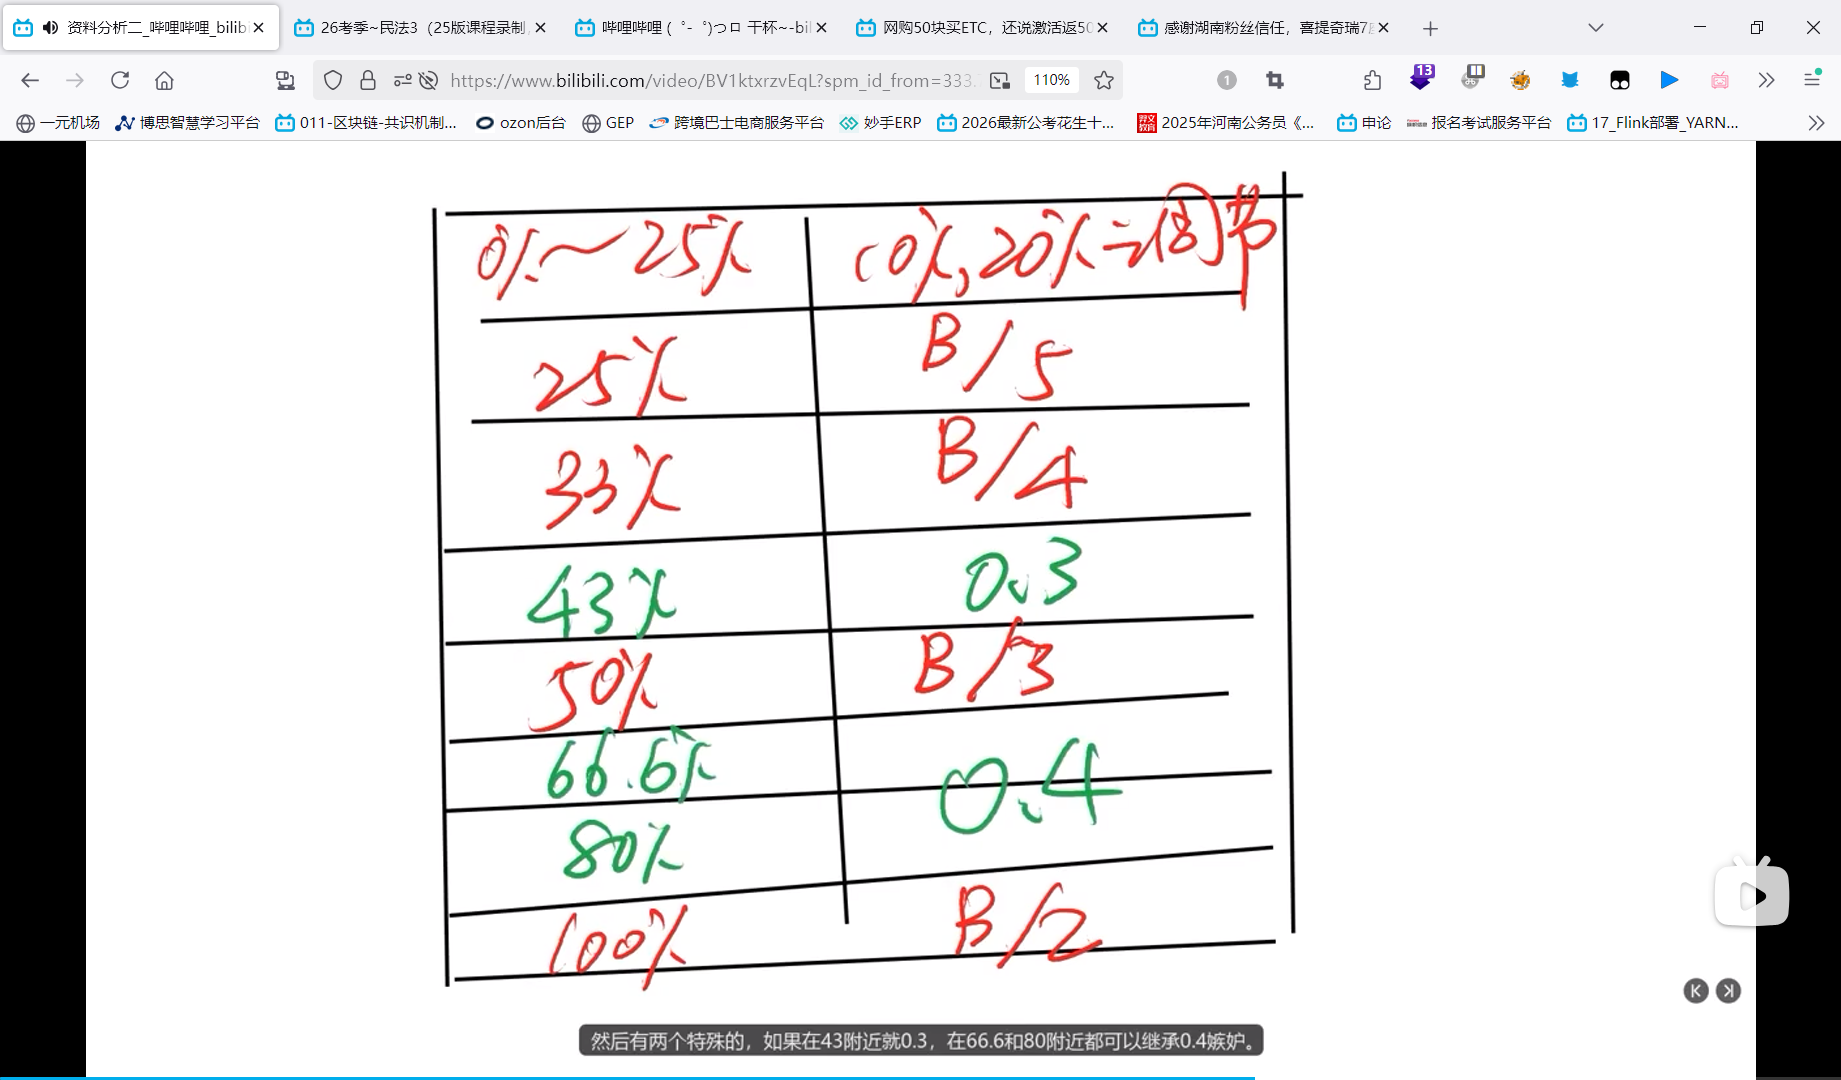 资料分析二_哔哩哔哩_bilibi
26考季~民法3（25版课程录制
哔哩哔哩 (゜-゜)つロ 干杯~-bil
网购50块买ETC，还说激活返50
感谢湖南粉丝信任，喜提奇瑞7
https://www.bilibili.com/video/BV1ktxrzvEqL?spm_id_from=333.
110%
1
13
一元机场
博思智慧学习平台
011-区块链-共识机制...
ozon后台
GEP
跨境巴士电商服务平台
妙手ERP
2026最新公考花生十...
2025年河南公务员《...
申论
报名考试服务平台
17_Flink部署_YARN...
0%~25%
10%,20%
25%
B/5
33%
B/4
43%
0.3
50%
B/3
66.6%
0.4
80%
100%
B/2
然后有两个特殊的，如果在43附近就0.3，在66.6和80附近都可以继承0.4嫉妒。